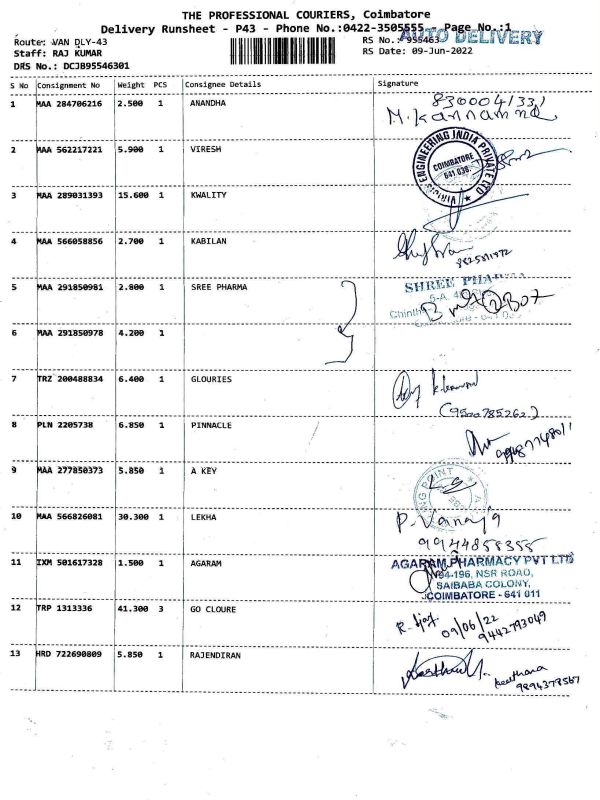 THE PROFESSIONAL COURIERS, Coimbatore
Delivery Runsheet - P43 - Phone No.:0422-3505555 - Page No.:1
AUTO DELIVERY
Route: VAN DLY-43
RS No.: 955463
Staff: RAJ KUMAR
RS Date: 09-Jun-2022
DRS No.: DCJB95546301
S No Consignment No Weight PCS Consignee Details Signature
1 MAA 284706216 2.500 1 ANANDHA
8300041331
M. Kannamma
2 MAA 562217221 5.900 1 VIRESH
ENGINEERING INDIA PRIVATE LTD
COIMBATORE
641 038.
3 MAA 289031393 15.600 1 KWALITY
4 MAA 566058856 2.700 1 KABILAN
5 MAA 291850981 2.800 1 SREE PHARMA
SHREE PHARMA
5-A,
6 MAA 291850978 4.200 1
7 TRZ 200488834 6.400 1 GLOURIES
(9500785262)
8 PLN 2205738 6.850 1 PINNACLE
9 MAA 277850373 5.850 1 A KEY
POINT
10 MAA 566826081 30.300 1 LEKHA
P. Vanaja
9944858355
11 IXM 501617328 1.500 1 AGARAM
AGARAM PHARMACY PVT LTD
194-196, NSR ROAD,
SAIBABA COLONY,
COIMBATORE - 641 011
12 TRP 1313336 41.300 3 GO CLOURE
09/06/22
9442793049
13 HRD 722690809 5.850 1 RAJENDIRAN
keerthana
9894378567